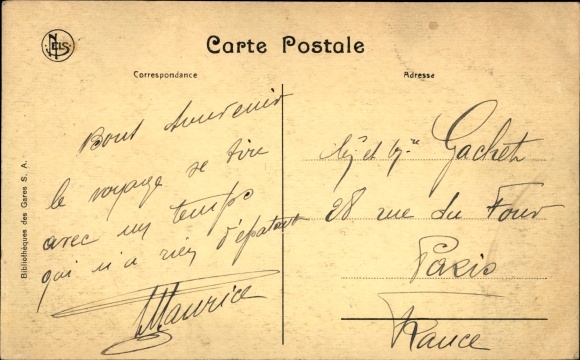 NELS
Carte Postale
Correspondance
Adresse
Bibliothèques des Gares S. A.
Bons Souvenir
le voyage se tire
avec un temps
qui n'a rien d'épatant
Maurice
et Gachet
28 rue du Four
Paris
France